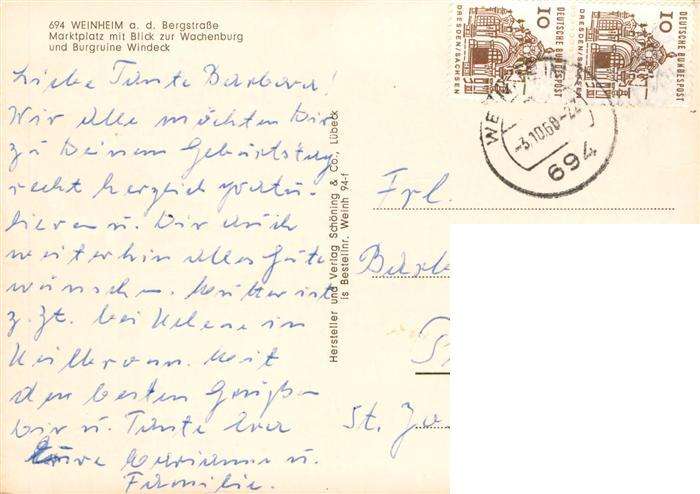 694 WEINHEIM a. d. Bergstraße
Marktplatz mit Blick zur Wachenburg
und Burgruine Windeck
Liebe Tante Barbara!
Wir alle möchten Dir
zu Deinem Geburtstag
recht herzlich gratu-
lieren u. Dir auch
weiterhin alles Gute
wünschen. Mutter ist
z. Zt. bei Helene in
Heilbronn. Mit
den besten Grüßen
Dir u. Tante
Eure Marianne u.
Familie.
Hersteller und Verlag Schöning & Co., Lübeck
is Bestellnr. Weinh 94-f
DEUTSCHE BUNDESPOST
10
DRESDEN/SACHSEN
DEUTSCHE BUNDESPOST
10
DRESDEN/SACHSEN
-3.10.68-22
694
Frl.
Barb
St. Jo